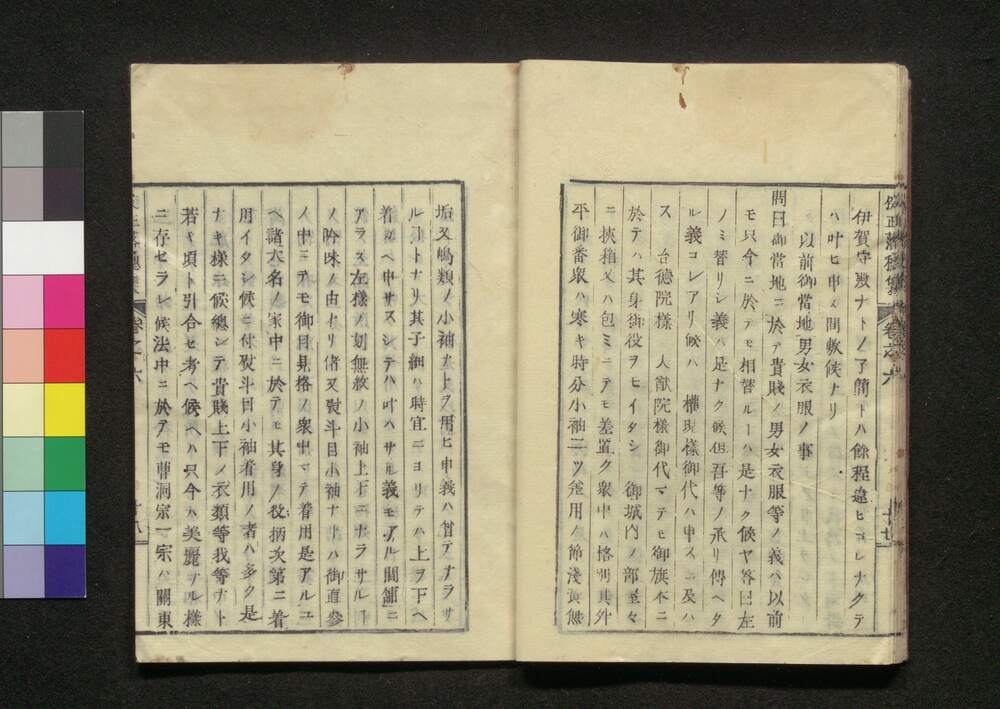 伊賀守殿ナトノ了簡トハ餘程違ヒコレナクテ
ハ叶ヒ申ス間敷候ナリ
以前御當地男女衣服ノ事
問曰御當地ニ於テ貴賤ノ男女衣服等ノ義ハ以前
モ只今ニ於テモ相替ルーハ是ナク候ヤ答曰左
ノミ替リシ義ハ是ナク候但吾等ノ承リ傳ヘタ
ル義コレアリ候ハ 權現樣御代ハ申スニ及ハ
ス 台德院樣 大猷院樣御代マテモ御旗本ニ
於テハ其身御役ヲモイタシ 御城内ノ部屋々
ニ挾箱又ハ包ミニテモ差置ク衆中ハ格別其外
平御番衆ハ寒キ時分小袖二ツ着用ノ節淺黄無
垢又鳴類ノ小袖ナト上ヲ用ヒ申義ハ曾テナラサ
ルートナリ其子細ハ時宜ニヨリテハ上ヲ下ヘ
着カヘ申サスシテハ叶ハサル義モアル間鋪ニ
アラス左樣ノ刻無紋ノ小袖上下ニナラサルー
ノ吟味ノ由ナリ偖又熨斗目小袖ナトハ御直參
ノ中ニテモ御目見格ノ衆中マテ着用是アルユ
ヘ諸大名ノ家中ニ於テモ其身ノ役柄次第ニ着
用イタシ候ニ付熨斗目小袖着用ノ者ハ多ク是
ナキ樣ニ候總シテ貴賤上下ノ衣類等我等ナト
若キ頃ト引合セ考ヘ候ヘハ只今ハ美麗ナル樣
ニ存セラレ候法中ニ於テモ曹洞宗一宗ハ關東